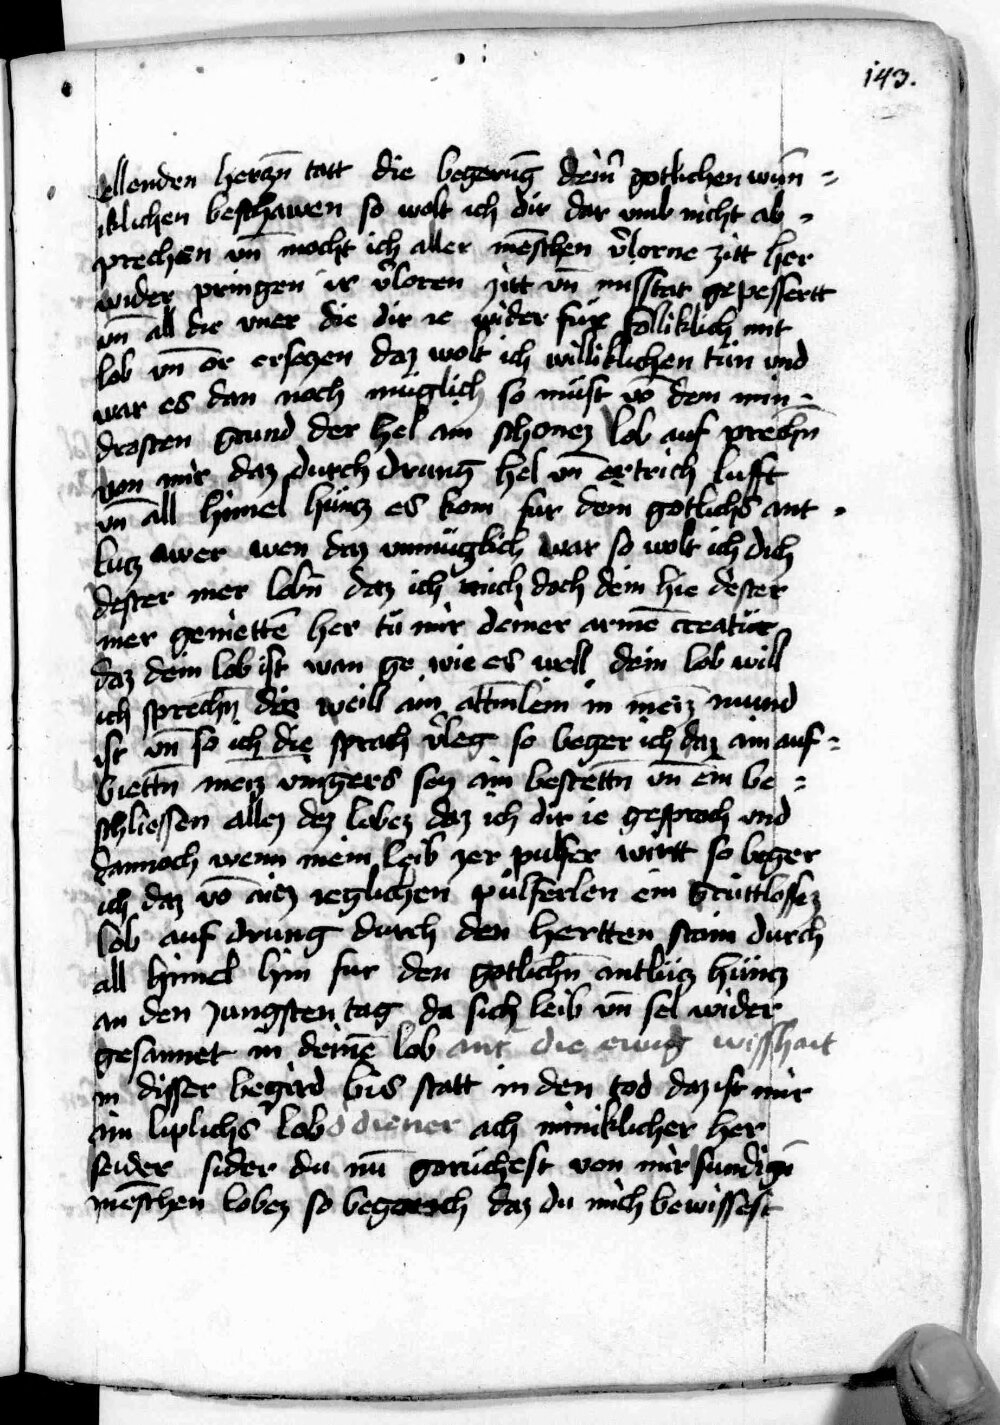 143.
ellenden herczn tatt die begerūg deīr gotlichen wūn =
iklichen beschawen so wolt ich dir dar vmb nicht ab =
prechen vn̄ mocht ich aller mēschen v̓lorne zitt her
wider pringen ir v̓loren zitt vn̄ misstat gepessertt
vn̄ all die vner die dir ie wider für folliklich mit
lob vn̄ er erseczen daz wolt ich williklichen tün vnd
war es dan noch müglich so müst vō dem min =
drosten grund der hel ain schonez lob auf prechn̄
von mir daz durch drung hel vn̄ ertrich lufft
vn̄ all himel hüncz es kom fur dem gotlichs ant =
lucz awer wen daz vnmüglich war so wolt ich dich
dester mer lobn̄ daz ich mich doch dein hie dester
mer geniettē her tü mir deiner armē creatür
daz dein lob ist wan ge wie es well dein lob will
ich sprechn̄ die weill ain attmlein in meīz mund
ist vn̄ so ich die sprach v̓leg so beger ich daz ain auf =
biettn̄ meīz vingers sey ain bestettn̄ vn̄ ein be =
schliessen allez dez lobez daz ich dir ie gesprach vnd
dannoch wenn mein leib zer pulfer wirtt so beger
ich daz vō aiēz ieglichen pülferlen ein gruttlossez
lob auf drung durch den hertten stain durch
all himel hin fur den gotlichn̄ antlücz hüncz
an den jungsten tag da sich leib vn̄ sel wider
gesamnet in deinē lob ant die ewig wisshait
in disser begird bis statt in den tod daz ist mir
ain liplichs lob d diener ach miniklicher her
seider sider du nū gerüchest von mir sundigē
mēschen lobez so beger ich daz du mich bewissest